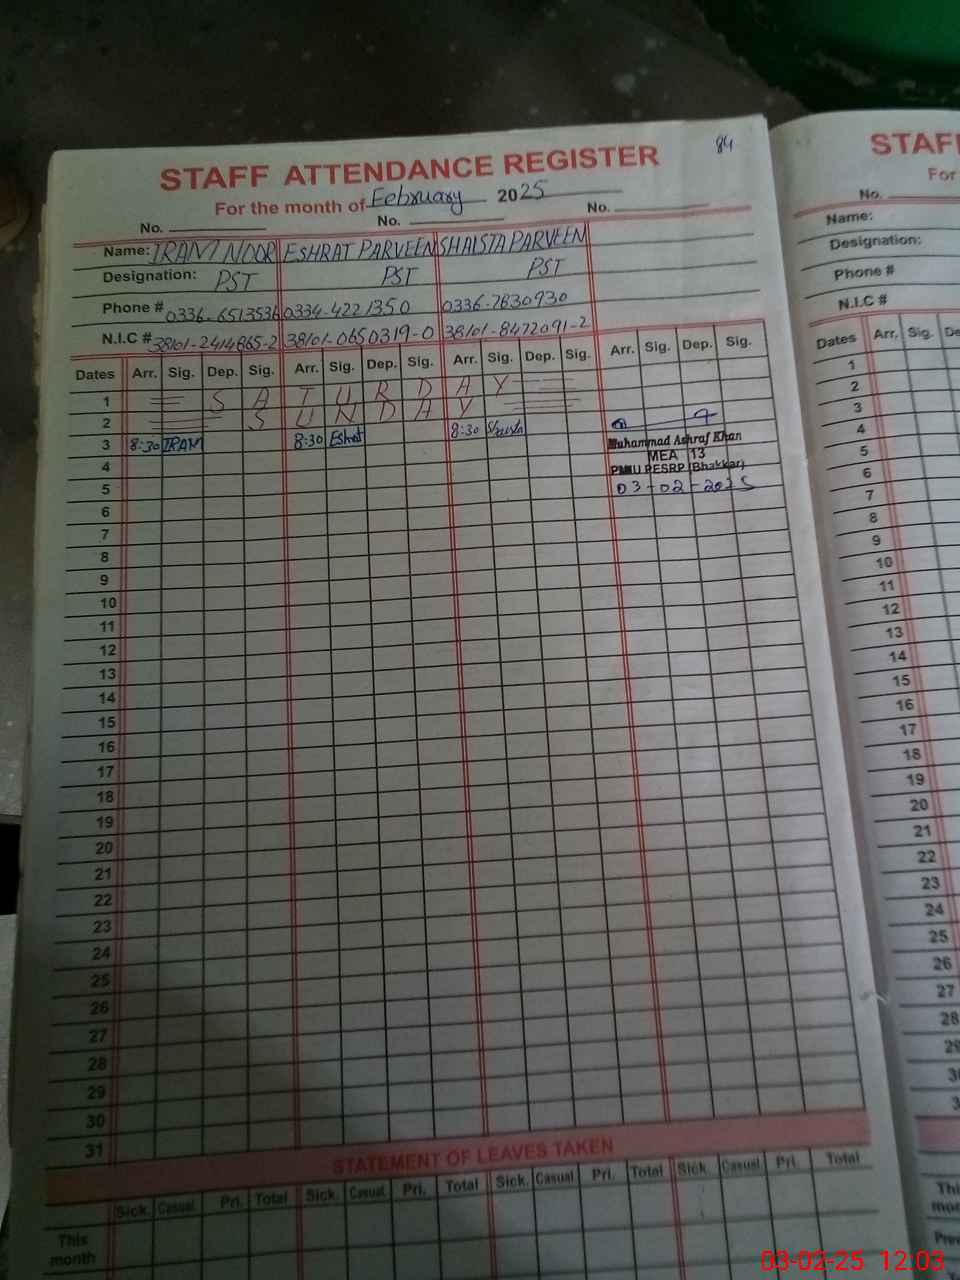 84
STAFF ATTENDANCE REGISTER
For the month of February 2025
No. No. No.
Name: IRAM NOOR ESHRAT PARVEEN SHAISTA PARVEEN
Designation: PST PST PST
Phone # 0336-6513536 0334-4221350 0336-7830930
N.I.C # 38101-2414865-2 38101-0650319-0 38101-8472091-2
Dates Arr. Sig. Dep. Sig. Arr. Sig. Dep. Sig. Arr. Sig. Dep. Sig. Arr. Sig. Dep. Sig.
1 S A T U R D A Y
2 S U N D A Y
3 8:30 IRAM 8:30 Eshrat 8:30 Shaista
Muhammad Ashraf Khan
MEA 13
PMIU PESRP (Bhakkar)
03-02-2025
4
5
6
7
8
9
10
11
12
13
14
15
16
17
18
19
20
21
22
23
24
25
26
27
28
29
30
31
STATEMENT OF LEAVES TAKEN
Sick. Casual Pri. Total Sick. Casual Pri. Total Sick. Casual Pri. Total Sick. Casual Pri. Total
This
month
STAF
For
No.
Name:
Designation:
Phone #
N.I.C #
Dates Arr. Sig. De
1
2
3
4
5
6
7
8
9
10
11
12
13
14
15
16
17
18
19
20
21
22
23
24
25
26
27
28
29
30
3
Thi
mon
Prev
03-02-25 12:03